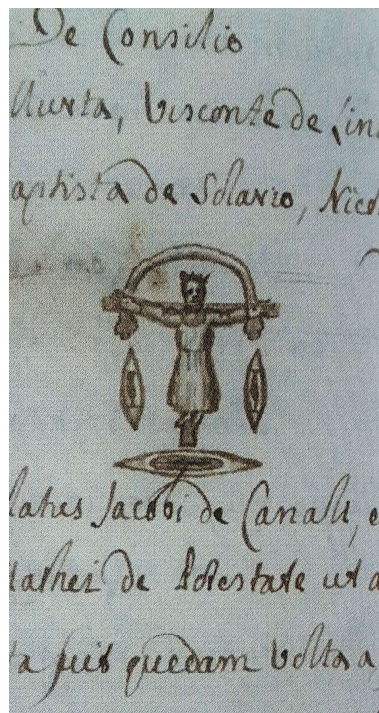 De Consilio
Aurta, Visconte de
aptista de Solario, Nico
latus Jacobi de Canali, e
de Potestate ut a
ta fuit quedam Volta a